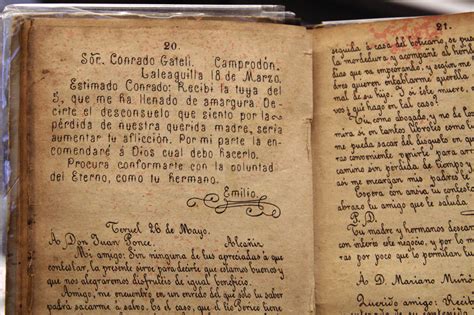 20.
Sor. Conrado Gatell. Camprodón.
Laleaguilla 18 de Marzo.
Estimado Conrado: Recibí la tuya del
5, que me ha llenado de amargura. De-
cirte el desconsuelo que siento por la
pérdida de nuestra querida madre, sería
aumentar tu aflicción. Por mi parte la en-
comendaré á Dios cual debo hacerlo.
Procura conformarte con la voluntad
del Eterno, como tu hermano.
Emilio.
Teruel 26 de Mayo.
Á Don Juan Ponce. Alcañiz
Mi amigo: Sin ninguna de tus apreciadas a que
contestar, la presente sirve para decirte que estamos buenos y
que nos alegraremos disfrutes de igual beneficio.
Amigo, me encuentro en un enredo del que sólo tu saber
podrá sacarme a salvo. Es el caso, que
21.
seguida á casa del boticario, se puso
la mordedura y acompañé al
días que va empeorando, y según me
quieren entablarme querella
mal de su hijo. Y si este muere,
cos ¿qué hago en tal caso?
Tú, como abogado, y no de los
mira si en tantos librotes como
me pueda sacar del
ras conveniente opinarte para
con perdida de tiempo, á
así me encargan mis padres
Espera con ansia tu
abrazo tu amigo que le saluda
P. D.
Tu madre y hermanos
con interés este negocio, y por lo
por poco que lo permitan
Á D. Mariano Muñoz
Querido amigo: